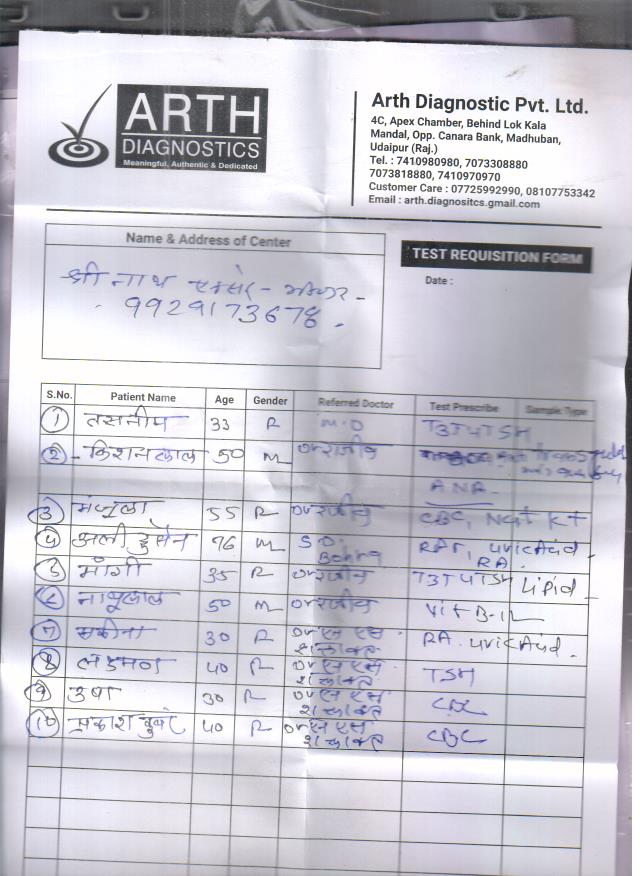 ARTH
DIAGNOSTICS
Meaningful, Authentic & Dedicated
Arth Diagnostic Pvt. Ltd.
4C, Apex Chamber, Behind Lok Kala
Mandal, Opp. Canara Bank, Madhuban,
Udaipur (Raj.)
Tel. : 7410980980, 7073308880
7073818880, 7410970970
Customer Care : 07725992990, 08107753342
Email : arth.diagnositcs.gmail.com
Name & Address of Center
श्री नाथ
9929173678
TEST REQUISITION FORM
Date :
S.No. Patient Name Age Gender Referred Doctor Test Prescribe Sample Type
1 तसनीम 33 M.D T3T4TSH
2 किशनलाल 50 M Dr राजीव
ANA
3 मंजुला 55 Dr राजीव CBC, Na+ K+
4 अली हुसैन 76 M S.D. RAF, uric Acid
Bohra RA
5 मांगी 35 Dr राजीव T3T4TSH Lipid
6 नाथुलाल 50 M Dr राजीव Vit B-12
7 सकीना 30 Dr एस एस RA uric Acid
8 लक्ष्मण 40 Dr एस एस TSH
9 उषा 30 Dr एस एस CBC
10 40 Dr एस एस CBC